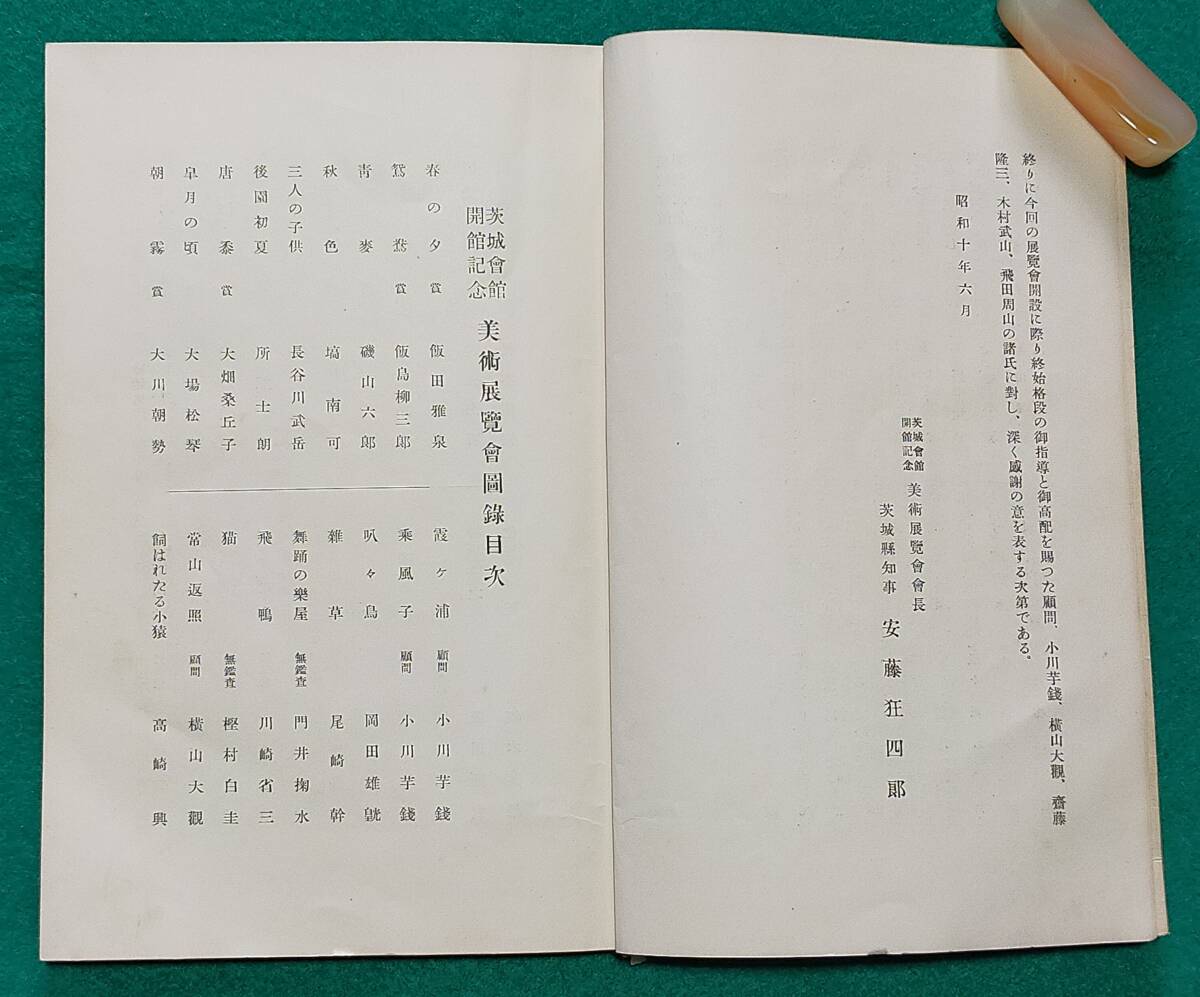 終りに今回の展覽會開設に際り終始格段の御指導と御高配を賜つた顧問、小川芋錢、橫山大觀、齋藤
隆三、木村武山、飛田周山の諸氏に對し、深く感謝の意を表する次第である。
昭和十年六月
茨城會館
開館記念
美術展覽會會長
茨城縣知事
安藤狂四郞
茨城會館
開館記念
美術展覽會圖錄目次
春の夕 賞 飯田雅泉
鴛鴦 賞 飯島柳三郞
靑麥 磯山六郞
秋色 塙南可
三人の子供 長谷川武岳
後園初夏 所士朗
唐黍 賞 大畑桑丘子
皐月の頃 大場松琴
朝霧 賞 大川朝勢
霞ケ浦 顧問 小川芋錢
乘風子 顧問 小川芋錢
叭々鳥 岡田雄
雜草 尾崎幹
舞踊の樂屋 無鑑査 門井掬水
飛鴨 川崎省三
猫 無鑑査 樫村白圭
常山返照 顧問 橫山大觀
飼はれたる小猿 高崎興